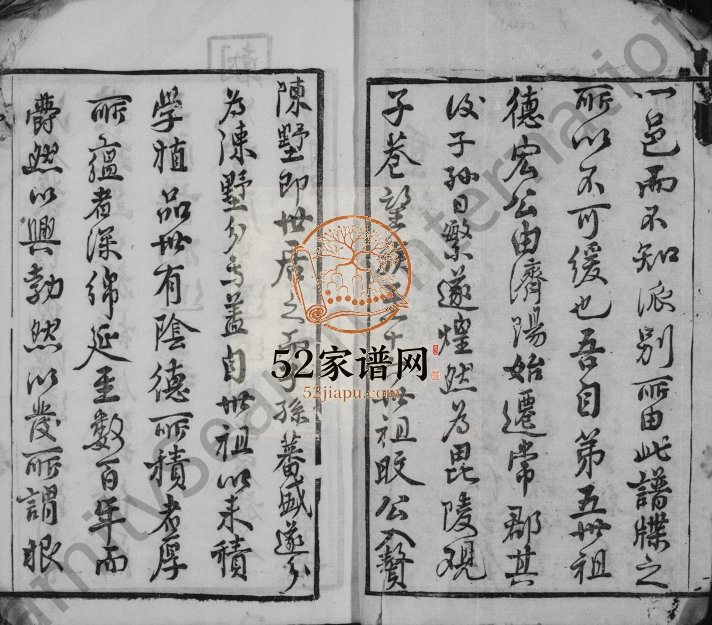 以邑而不知派别所由此譜牒之
所以不可緩也吾自第五世祖
德宏公由濟陽始遷常郡其
後子孫日繁遂煌然為毘陵觀
子巷望族至十世祖昄公入贅
陳墅即世居之子孫蕃盛遂分
為陳墅分焉蓋自世祖以来積
学植品世有陰德所積者厚
所蘊者深綿延至数百年而
欝然以興勃然以發所謂根
52家谱网
52jiapu.com